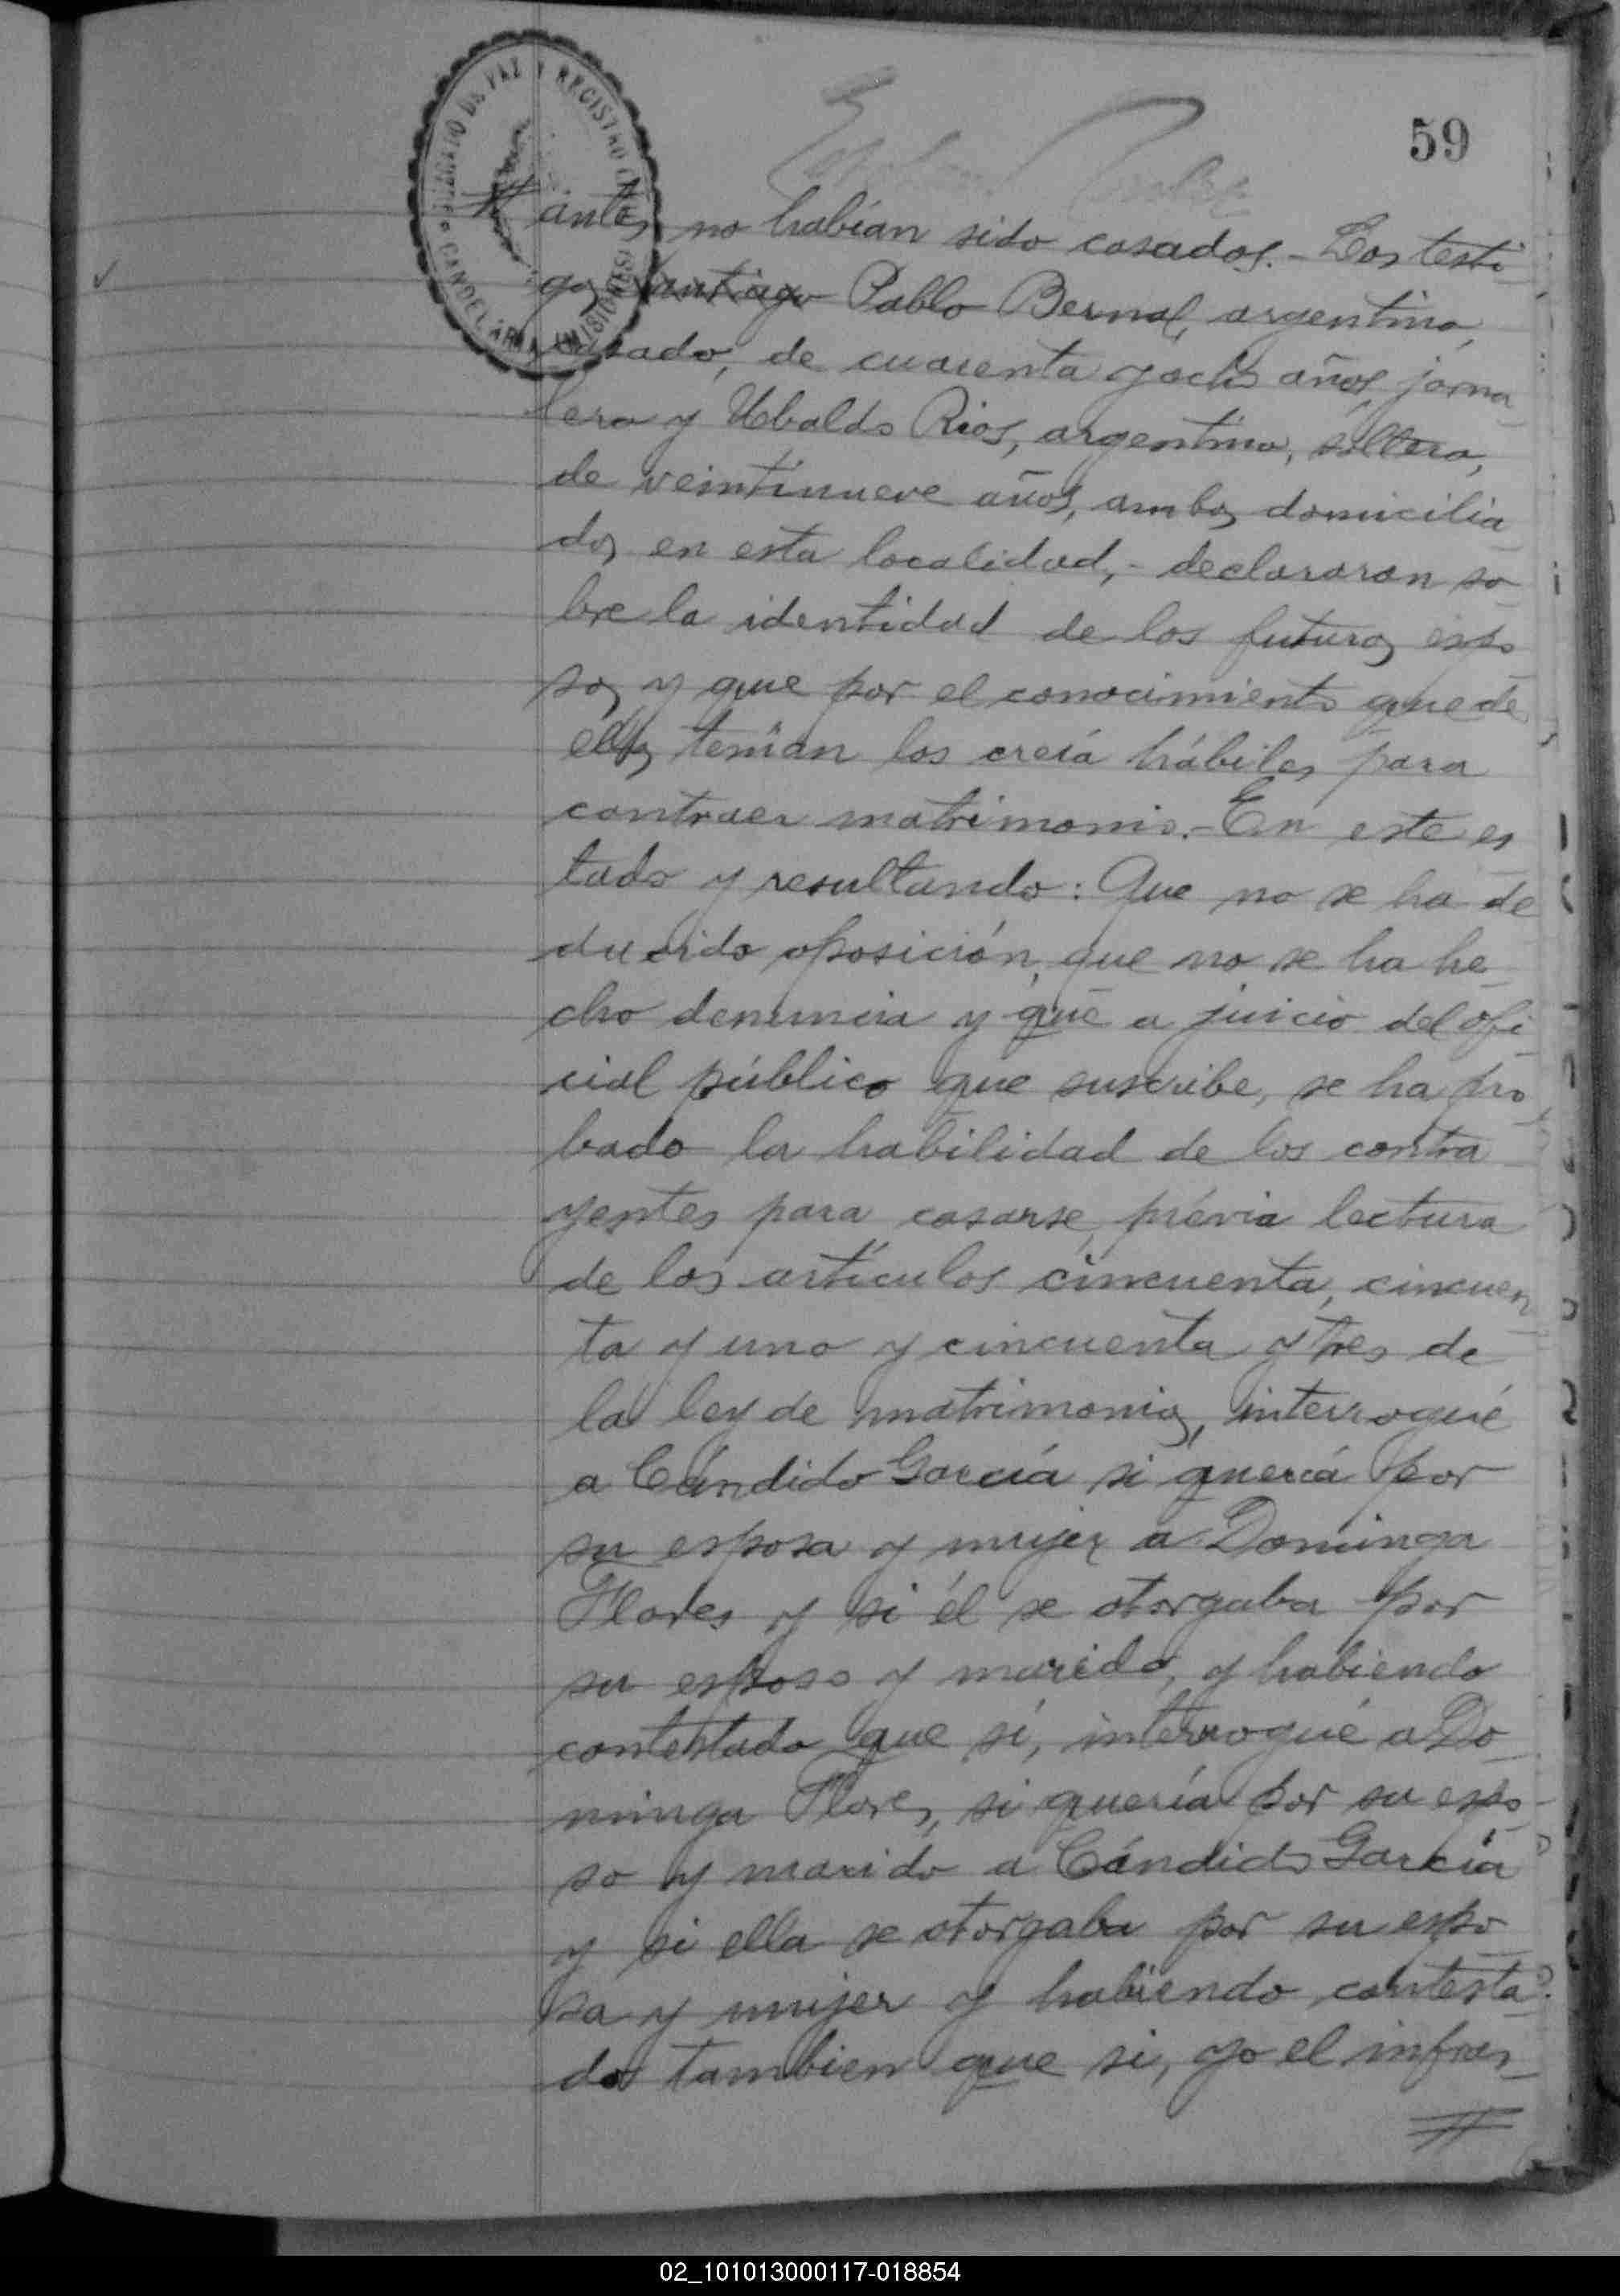 59
JUZGADO DE PAZ Y REGISTRO CIVIL
CANDELARIA (MISIONES)
antes no habían sido casados.- Los testi
gos Santiago Pablo Bernal, argentino,
casado, de cuarenta y ocho años, jorna
lero y Ubaldo Rios, argentino, soltero,
de veintinueve años, ambos domicilia
dos en esta localidad,- declararon so
bre la identidad de los futuros espo
sos y que por el conocimiento que de
ellos tenían los creía hábiles para
contraer matrimonio.- En este es
tado y resultando: Que no se ha de
ducido oposición, que no se ha he
cho denuncia y que a juicio del ofi
cial público que suscribe, se ha pro
bado la habilidad de los contra
yentes para casarse, prévia lectura
de los artículos cincuenta, cincuen
ta y uno y cincuenta y tres de
la ley de matrimonios, interrogué
a Cándido García si quería por
su esposa y mujer a Dominga
Flores y si él se otorgaba por
su esposo y marido, y habiendo
contestado que sí, interrogué a Do
minga Flores, si quería por su espo
so y marido a Cándido García
y si ella se otorgaba por su espo
sa y mujer y habiendo contesta
do tambien que si, yo el infras
02_101013000117-018854